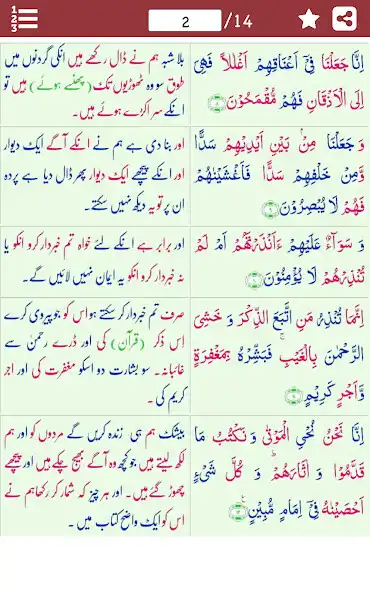 1
2
3
2 /14
اِنَّا جَعَلْنَا فِیْۤ اَعْنَاقِهِمْ اَغْلٰلًا فَهِیَ
اِلَی الْاَذْقَانِ فَهُمْ مُّقْمَحُوْنَ
بلا شبہ ہم نے ڈال رکھے ہیں انکی گردنوں میں
طوق سو وہ ٹھوڑیوں تک (پھنسے ہوئے) ہیں تو
انکے سر اکڑے ہوئے ہیں۔
وَ جَعَلْنَا مِنْۢ بَیْنِ اَیْدِیْهِمْ سَدًّا
وَّ مِنْ خَلْفِهِمْ سَدًّا فَاَغْشَیْنٰهُمْ
فَهُمْ لَا یُبْصِرُوْنَ
اور بنا دی ہے ہم نے انکے آگے ایک دیوار
اور انکے پیچھے ایک دیوار پھر ڈال دیا ہے پردہ
ان پر تو یہ دیکھ نہیں سکتے۔
وَ سَوَآءٌ عَلَیْهِمْ ءَاَنْذَرْتَهُمْ اَمْ لَمْ
تُنْذِرْهُمْ لَا یُؤْمِنُوْنَ
اور برابر ہے انکے لئے خواہ تم خبردار کرو انکو یا
نہ خبردار کرو انکو یہ ایمان نہیں لائیں گے۔
اِنَّمَا تُنْذِرُ مَنِ اتَّبَعَ الذِّكْرَ وَ خَشِیَ
الرَّحْمٰنَ بِالْغَیْبِ ۚ فَبَشِّرْهُ بِمَغْفِرَةٍ
وَّ اَجْرٍ كَرِیْمٍ
صرف تم خبردار کر سکتے ہو اس کو جو پیروی کرے
اس ذکر (قرآن) کی اور ڈرے رحمٰن سے
غائبانہ۔ سو بشارت دو اسکو مغفرت کی اور اجر
کریم کی۔
اِنَّا نَحْنُ نُحْیِ الْمَوْتٰی وَ نَكْتُبُ مَا
قَدَّمُوْا وَ اٰثَارَهُمْ ؕ وَ كُلَّ شَیْءٍ
اَحْصَیْنٰهُ فِیْۤ اِمَامٍ مُّبِیْنٍ
بیشک ہم ہی زندہ کریں گے مردوں کو اور ہم
لکھ لیتے ہیں جو کچھ وہ آگے بھیج چکے ہیں اور پیچھے
چھوڑ گئے ہیں۔ اور ہر چیز کہ شمار کر رکھا ہم نے
اس کو ایک واضح کتاب میں۔